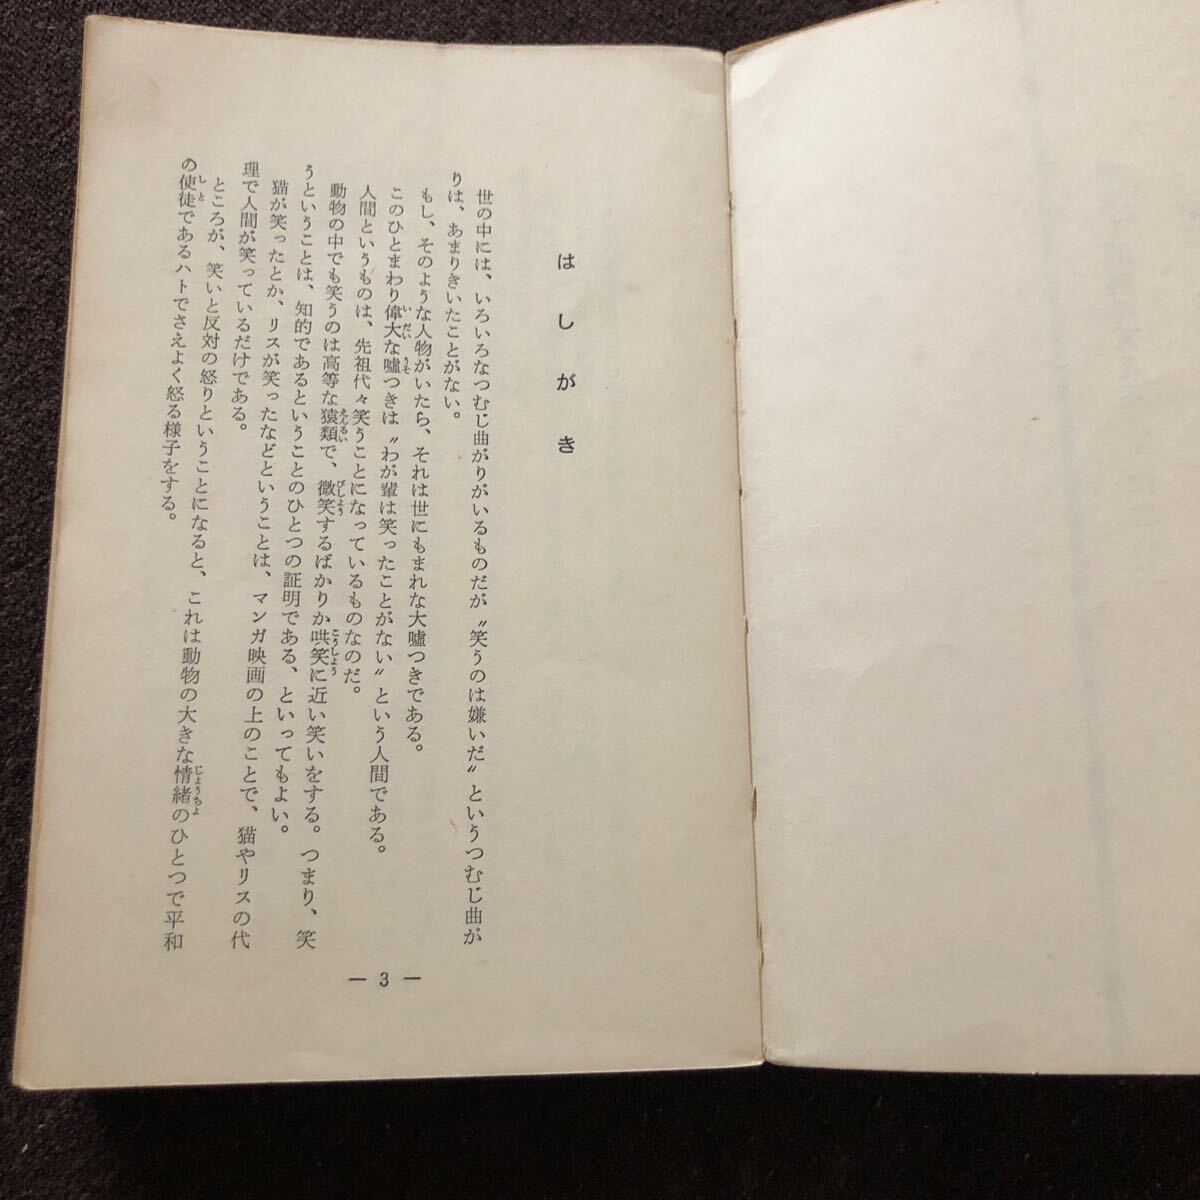 はしがき
世の中には、いろいろなつむじ曲がりがいるものだが〝笑うのは嫌いだ〟というつむじ曲が
りは、あまりきいたことがない。
もし、そのような人物がいたら、それは世にもまれな大嘘つきである。
このひとまわり偉大な嘘つきは〝わが輩は笑ったことがない〟という人間である。
人間というものは、先祖代々笑うことになっているものなのだ。
動物の中でも笑うのは高等な猿類で、微笑するばかりか哄笑に近い笑いをする。つまり、笑
うということは、知的であるということのひとつの証明である、といってもよい。
猫が笑ったとか、リスが笑ったなどということは、マンガ映画の上のことで、猫やリスの代
理で人間が笑っているだけである。
ところが、笑いと反対の怒りということになると、これは動物の大きな情緒のひとつで平和
の使徒であるハトでさえよく怒る様子をする。
— 3 —